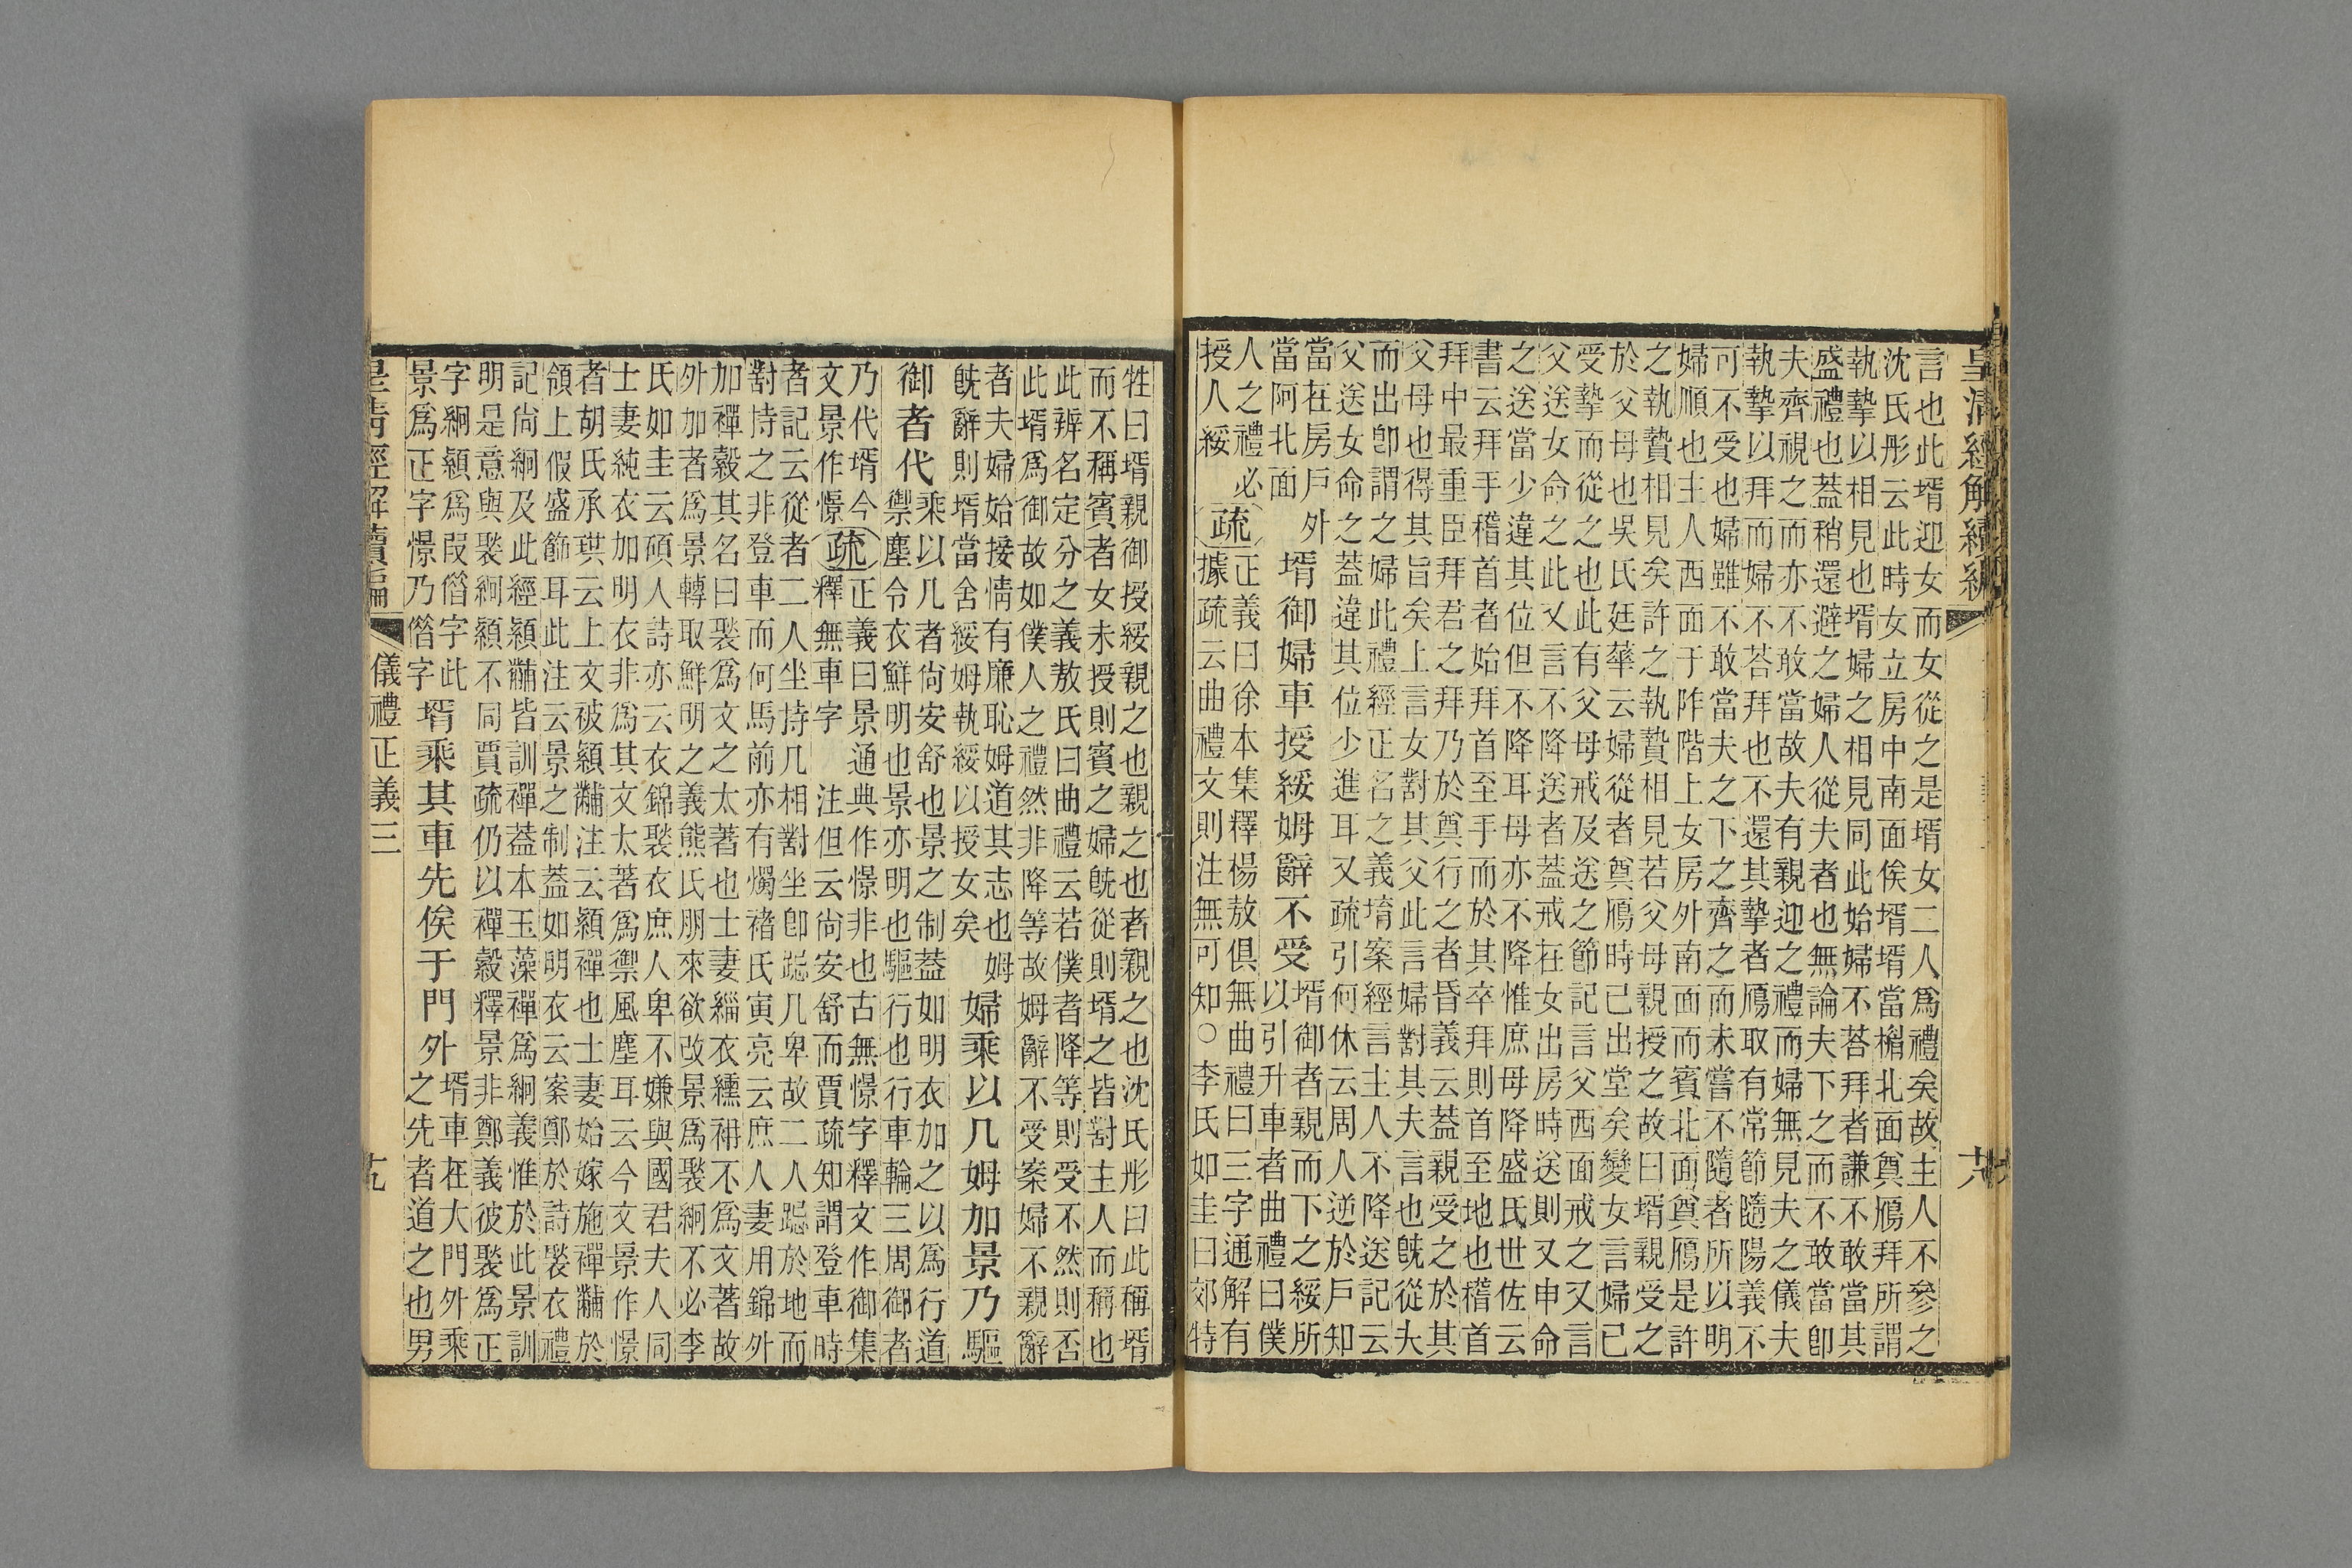 皇清經解續編
十八
言也此壻迎女而女從之是壻女二人爲禮矣故主人不參之
沈氏彤云此時女立房中南面俟壻壻當楣北面奠鴈拜所謂
執摯以相見也壻婦之相見同此始婦不荅拜者謙不敢當其
盛禮也蓋稍還避之婦人從夫者也無論夫下之而不敢當卽
夫齊視之而亦不敢當故夫有親迎之禮而婦無見夫之儀夫
執摯以拜而婦不荅拜也不還其摯者鴈取有常節隨陽義不
可不受也婦雖不敢當夫之下之齊之而未嘗不隨者所以明
婦順也主人西面于阼階上女房外南面而賓北面奠鴈是許
之執贄相見矣許之執贄相見若父母親授之故曰壻親受之
於父母也吳氏廷華云婦從者奠鴈時已出堂矣變女言婦已
受摯而從之也此有父母戒及送之節記言父西面戒之又言
父送女命之此又言不降送者蓋戒在女出房時送則又申命
之送當少違其位但不降耳母亦不降惟庶母降盛氏世佐云
書云拜手稽首者始拜首至手而於其卒拜則首至地也稽首
拜中最重臣拜君之拜乃於奠行之者昏義云蓋親受之於其
父母也得其旨矣上言女對其父此言婦對其夫言也旣從夫
而出卽謂之婦此禮經正名之義堉案經言主人不降送記云
父送女命之蓋違其位少進耳又疏引何休云周人逆於戶知
當在房戶外
當阿北面
壻御婦車授綏姆辭不受
壻御者親而下之綏所
以引升車者曲禮曰僕
人之禮必
授人綏
疏
正義曰徐本集釋楊敖俱無曲禮曰三字通解有
據疏云曲禮文則注無可知○李氏如圭曰郊特
牲曰壻親御授綏親之也親之也者親之也沈氏彤曰此稱壻
而不稱賓者女未授則賓之婦旣從則壻之皆對主人而稱也
此辨名定分之義敖氏曰曲禮云若僕者降等則受不然則否
此壻爲御故如僕人之禮然非降等故姆辭不受案婦不親辭
者夫婦始接情有廉恥姆道其志也姆
旣辭則壻當舍綏姆執綏以授女矣
婦乘以几姆加景乃驅
御者代
乘以几者尙安舒也景之制蓋如明衣加之以爲行道
禦塵令衣鮮明也景亦明也驅行也行車輪三周御者
乃代壻今
文景作憬
疏
正義曰景通典作憬非也古無憬字釋文作御集
釋無車字 注但云尚安舒而賈疏知謂登車時
者記云從者二人坐持几相對坐卽跽几卑故二人跽於地而
對持之非登車而何馬前亦有燭褚氏寅亮云庶人妻用錦外
加禪縠其名曰褧爲文之太著也士妻緇衣纁袡不爲文著故
外加者爲景轉取鮮明之義熊氏朋來欲改景爲褧絅不必李
氏如圭云碩人詩亦云衣錦褧衣庶人卑不嫌與國君夫人同
士妻純衣加明衣非爲其文太著爲禦風塵耳云今文景作憬
者胡氏承珙云上文被顈黼注云顈禪也士妻始嫁施禪黼於
領上假盛飾耳此注云景之制蓋如明衣云案鄭於詩褧衣禮
記尙絅及此經顈黼皆訓禪蓋本玉藻禪爲絅義惟於此景訓
明是意與褧絅顈不同賈疏仍以禪縠釋景非鄭義彼褧爲正
字絅顈爲叚借字此
景爲正字憬乃借字
壻乘其車先俟于門外
壻車在大門外乘
之先者道之也男
皇清經解續編
儀禮正義三
十九